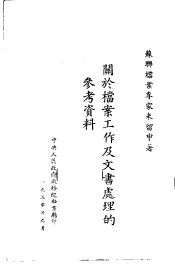 蘇聯檔案專家米留申著
關於檔案工作及文書處理的
參考資料
中央人民政府政務院秘書廳印
一九五〇年九月